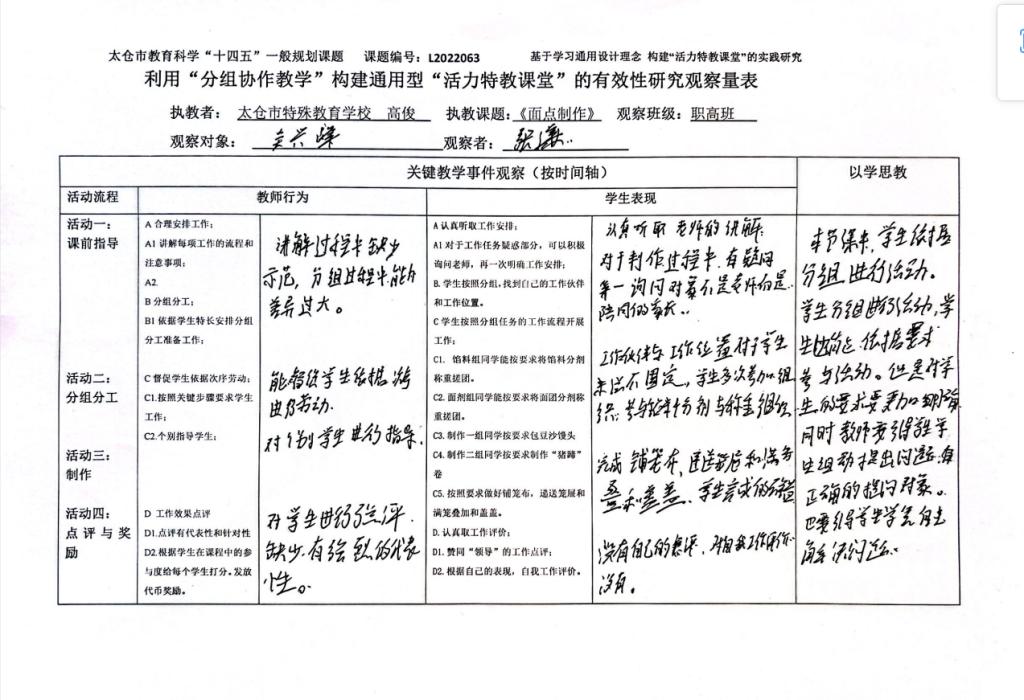 太仓市教育科学“十四五”一般规划课题 课题编号：L2022063 基于学习通用设计理念 构建“活力特教课堂”的实践研究
利用“分组协作教学”构建通用型“活力特教课堂”的有效性研究观察量表
执教者： 太仓市特殊教育学校 高俊 执教课题：《面点制作》 观察班级：职高班
观察对象： 观察者：
关键教学事件观察（按时间轴） 以学思教
活动流程 教师行为 学生表现
活动一：
课前指导
A 合理安排工作；
A1 讲解每项工作的流程和
注意事项；
A2.
B 分组分工；
B1 依据学生特长安排分组
分工准备工作；
讲解过程中缺少
示范，分组过程中能力
差异过大。
A 认真听取工作安排；
A1 对于工作任务疑惑部分，可以积极
询问老师，再一次明确工作安排；
B. 学生按照分组，找到自己的工作伙伴
和工作位置。
C 学生按照分组任务的工作流程开展
工作；
C1. 馅料组同学能按要求将馅料分剂
称重搓团。
C2. 面剂组同学能按要求将面团分剂称
重搓团。
C3. 制作一组同学按要求包豆沙馒头
C4. 制作二组同学按要求制作“猪蹄”
卷
C5. 按照要求做好铺笼布，递送笼屉和
满笼叠加和盖盖。
D. 认真取工作评价；
D1. 赞同“领导”的工作点评；
D2. 根据自己的表现，自我工作评价。
认真听取老师的讲解；
对于制作过程中，有疑问
第一询问对象不是老师而是
陪同的家长。
工作伙伴与工作位置对于学生
来说不固定，学生多次参加组
活动二：
分组分工
C 督促学生依据次序劳动；
C1.按照关键步骤要求学生
工作；
C2.个别指导学生；
能督促学生依据
劳动.
对个别学生进行指导.
活动三：
制作
完成铺笼布、递送笼屉和
叠和盖盖.
活动四：
点评与奖
励
D 工作效果点评
D1.点评有代表性和针对性
D2.根据学生在课程中的参
与度给每个学生打分。发放
代币奖励。
对学生进行了点评.
缺少有 的代表
性。
没有自己的点评，对自我工作评价
没有。
本节课中，学生依据
分组进行活动。
学生分组进行活动，学
生 依据要求
参与活动。但是对学
生的要求要更加明确
同时教师要引导学
生组 提出问题
正确的提问对象。
也要引导学生学会自主
解决问题.